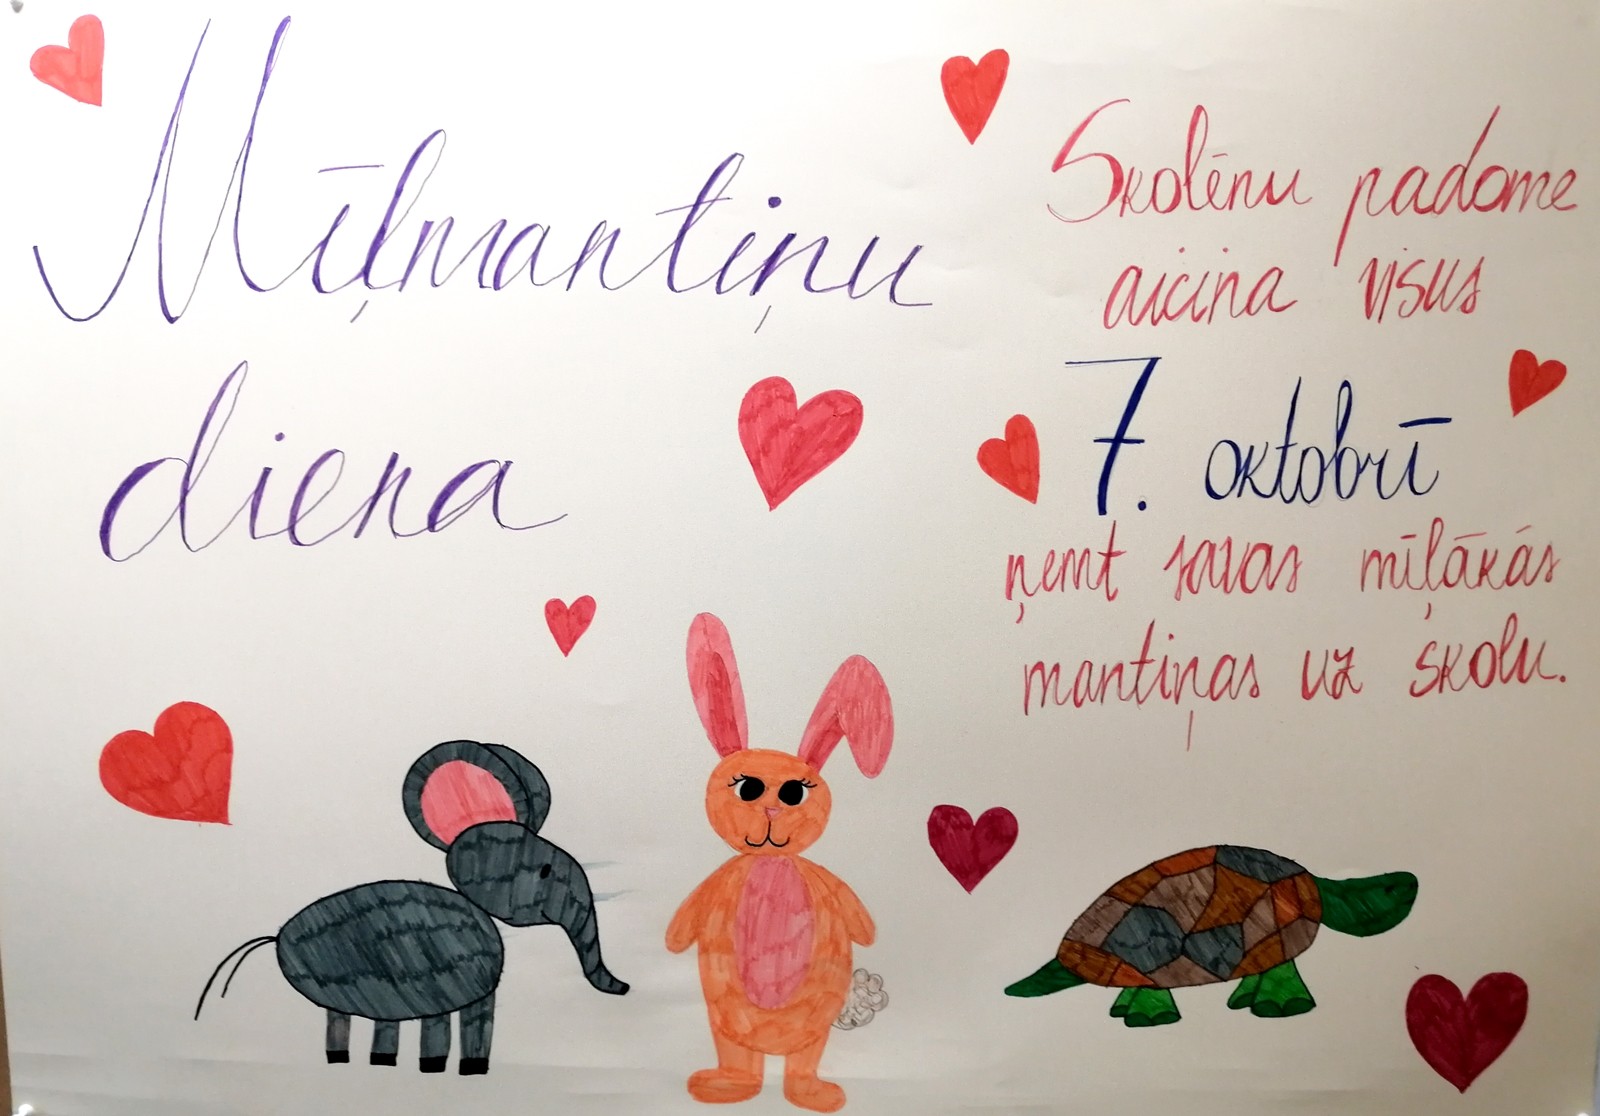 Mīļmantiņu
diena
Skolēnu padome
aicina visus
7. oktobrī
ņemt savas mīļākās
mantiņas uz skolu.